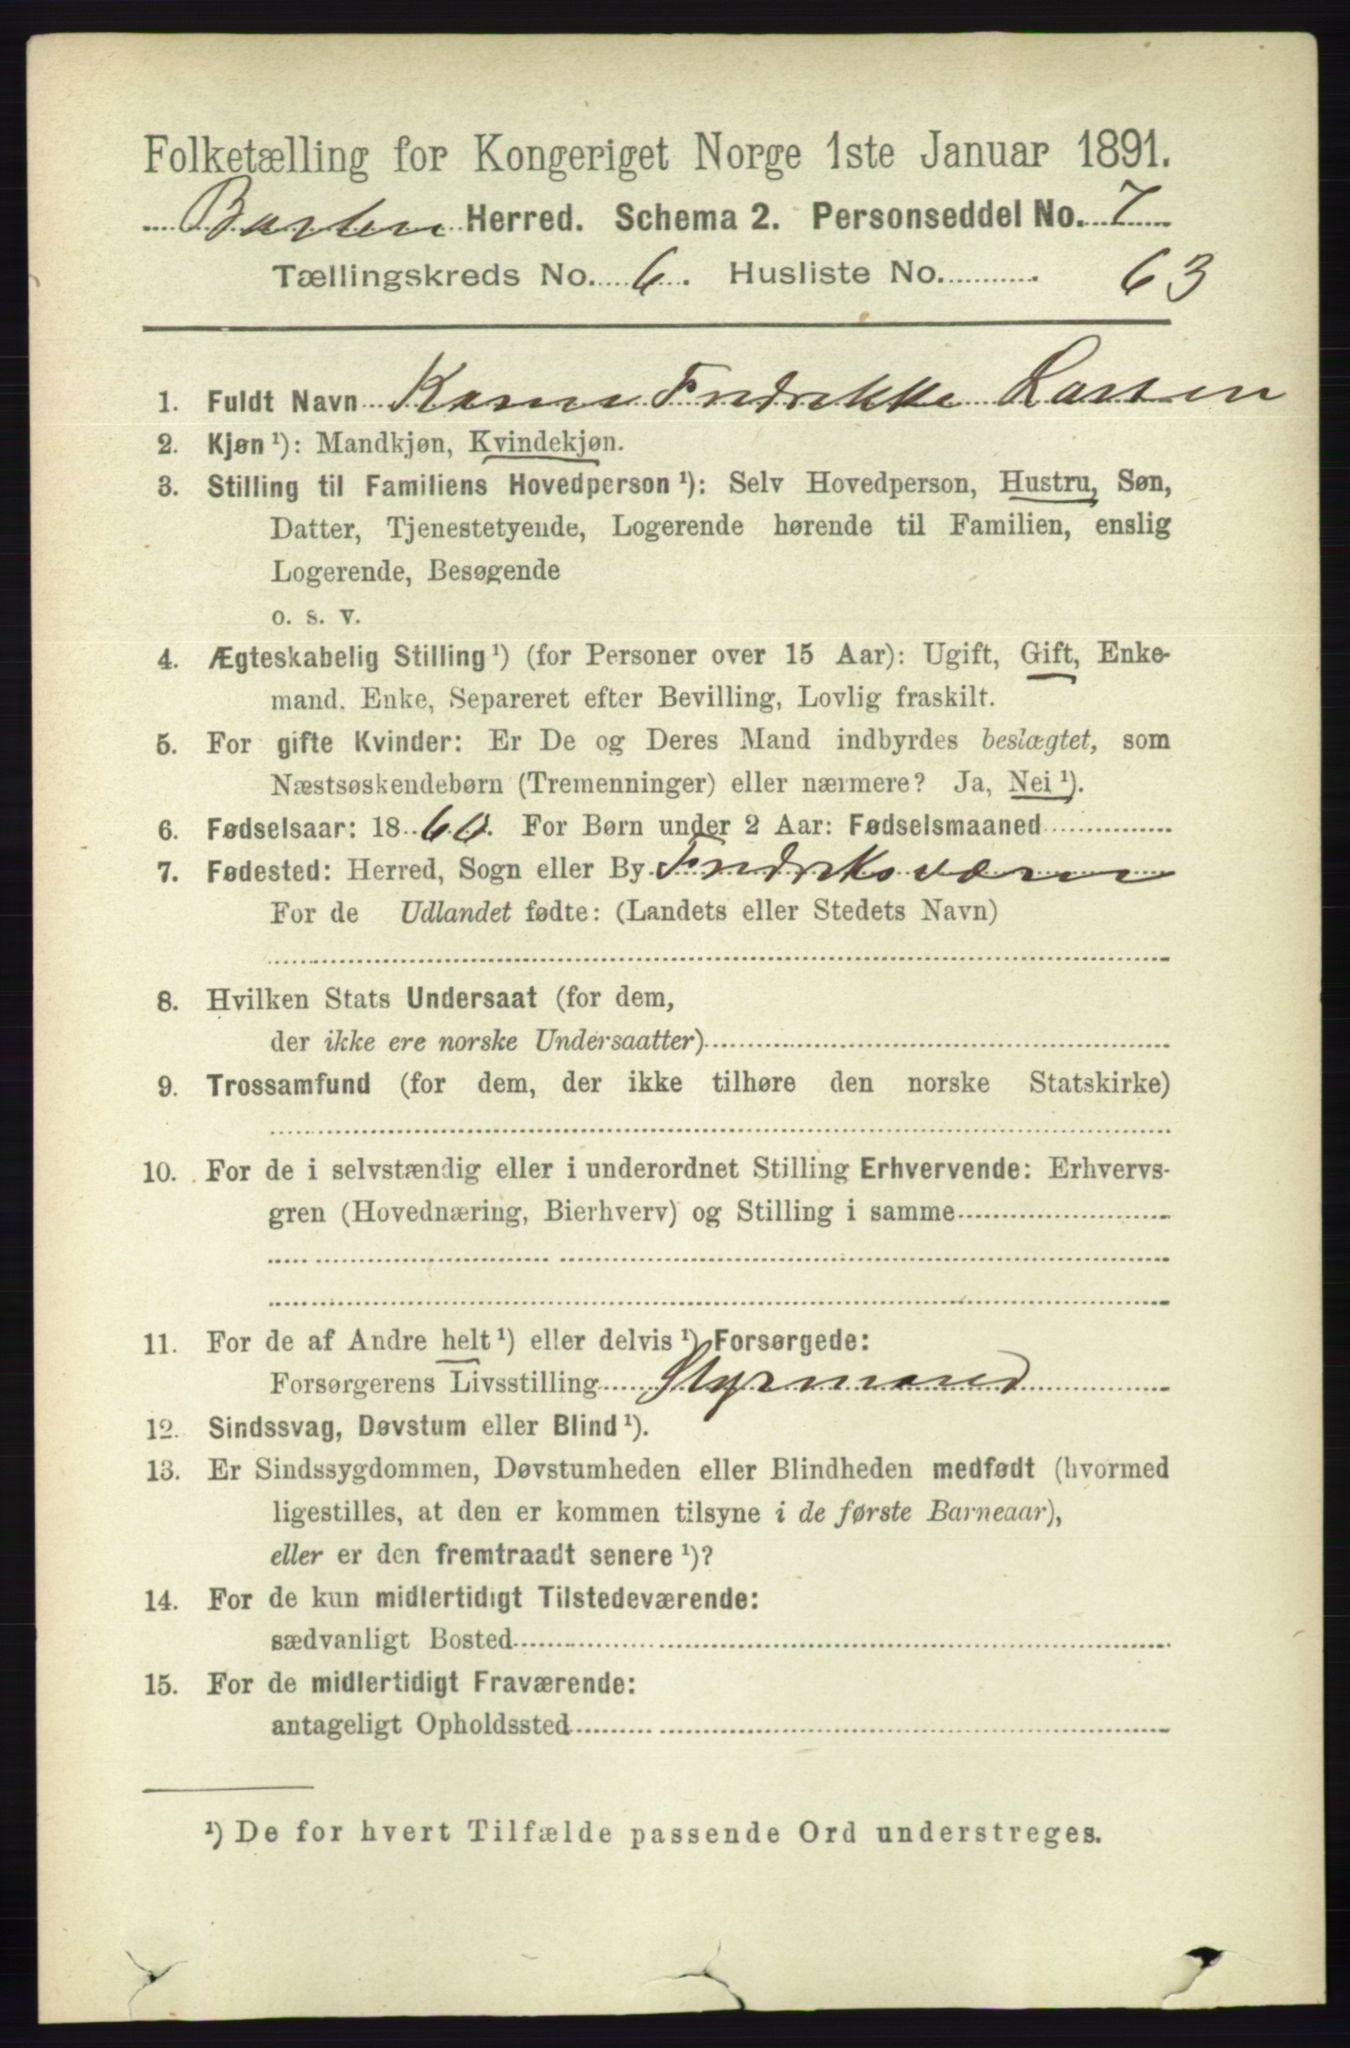 Folketælling for Kongeriget Norge 1ste Januar 1891.
Herred. Schema 2. Personseddel No. 7
Tællingskreds No. 6. Husliste No. 63
1. Fuldt Navn Fredrikke Larsen
2. Kjøn ¹): Mandkjøn, Kvindekjøn.
3. Stilling til Familiens Hovedperson ¹): Selv Hovedperson, Hustru, Søn,
Datter, Tjenestetyende, Logerende hørende til Familien, enslig
Logerende, Besøgende
o. s. v.
4. Ægteskabelig Stilling ¹) (for Personer over 15 Aar): Ugift, Gift, Enke-
mand, Enke, Separeret efter Bevilling, Lovlig fraskilt.
5. For gifte Kvinder: Er De og Deres Mand indbyrdes beslægtet, som
Næstsøskendebørn (Tremenninger) eller nærmere? Ja, Nei ¹).
6. Fødselsaar: 1860. For Børn under 2 Aar: Fødselsmaaned
7. Fødested: Herred, Sogn eller By Fredriksværn
For de Udlandet fødte: (Landets eller Stedets Navn)
8. Hvilken Stats Undersaat (for dem,
der ikke ere norske Undersaatter)
9. Trossamfund (for dem, der ikke tilhøre den norske Statskirke)
10. For de i selvstændig eller i underordnet Stilling Erhvervende: Erhvervs-
gren (Hovednæring, Bierhverv) og Stilling i samme
11. For de af Andre helt ¹) eller delvis ¹) Forsørgede:
Forsørgerens Livsstilling Styrmand
12. Sindssvag, Døvstum eller Blind ¹).
13. Er Sindssygdommen, Døvstumheden eller Blindheden medfødt (hvormed
ligestilles, at den er kommen tilsyne i de første Barneaar),
eller er den fremtraadt senere ¹)?
14. For de kun midlertidigt Tilstedeværende:
sædvanligt Bosted
15. For de midlertidigt Fraværende:
antageligt Opholdssted
¹) De for hvert Tilfælde passende Ord understreges.